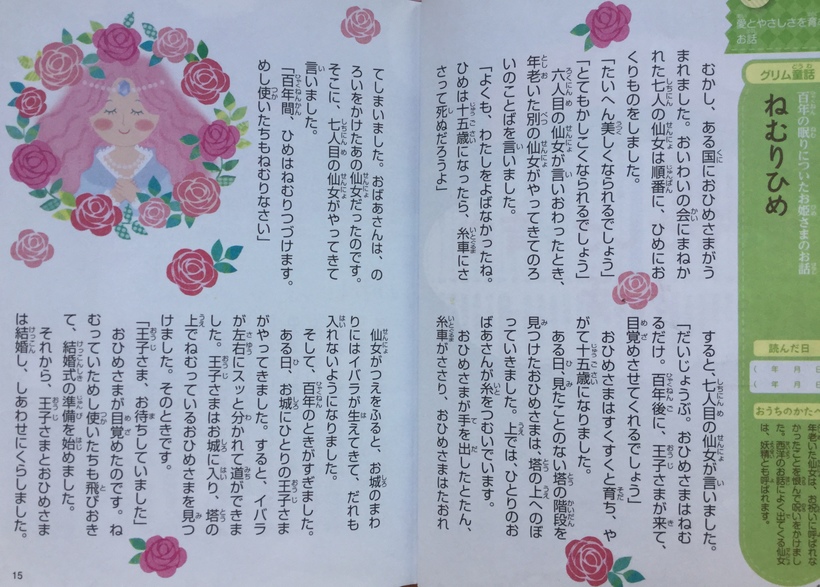 愛とやさしさを育
お話
グリム童話
百年の眠りについたお姫さまのお話
ねむりひめ
読んだ日
( 年 月 日
( 年 月 日
おうちのかたへ
年老いた仙女は、お祝いに呼ばれな
かったことを恨んで呪いをかけまし
た。西洋のお話によく出てくる仙女
は、妖精とも呼ばれます。
むかし、ある国におひめさまがう
まれました。おいわいの会にまねか
れた七人の仙女は順番に、ひめにお
くりものをしました。
「たいへん美しくなられるでしょう」
「とてもかしこくなられるでしょう」
六人目の仙女が言いおわったとき、
年老いた別の仙女がやってきてのろ
いのことばを言いました。
「よくも、わたしをよばなかったね。
ひめは十五歳になったら、糸車にさ
さって死ぬだろうよ」
すると、七人目の仙女が言いました。
「だいじょうぶ。おひめさまはねむ
るだけ。百年後に、王子さまが来て、
目覚めさせてくれるでしょう」
おひめさまはすくすくと育ち、や
がて十五歳になりました。
ある日、見たことのない塔の階段を
見つけたおひめさまは、塔の上へのぼ
っていきました。上では、ひとりのお
ばあさんが糸をつむいでいます。
おひめさまが手を出したとたん、
糸車がささり、おひめさまはたおれ
てしまいました。おばあさんは、の
ろいをかけたあの仙女だったのです。
そこに、七人目の仙女がやってきて
言いました。
「百年間、ひめはねむりつづけます。
めし使いたちもねむりなさい」
仙女がつえをふると、お城のまわ
りにはイバラが生えてきて、だれも
入れないようになりました。
そして、百年のときがすぎました。
ある日、お城にひとりの王子さま
がやってきました。すると、イバラ
が左右にスッと分かれて道ができま
した。王子さまはお城に入り、塔の
上でねむっているおひめさまを見つ
けました。そのときです。
「王子さま、お待ちしていました」
おひめさまが目覚めたのです。ね
むっていためし使いたちも飛びおき
て、結婚式の準備を始めました。
それから、王子さまとおひめさま
は結婚し、しあわせにくらしました。
15